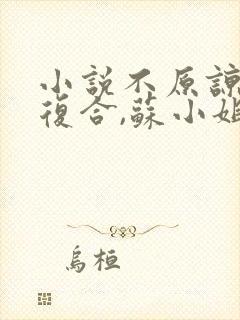 小說不原諒
復合,蘇小姐
烏桓